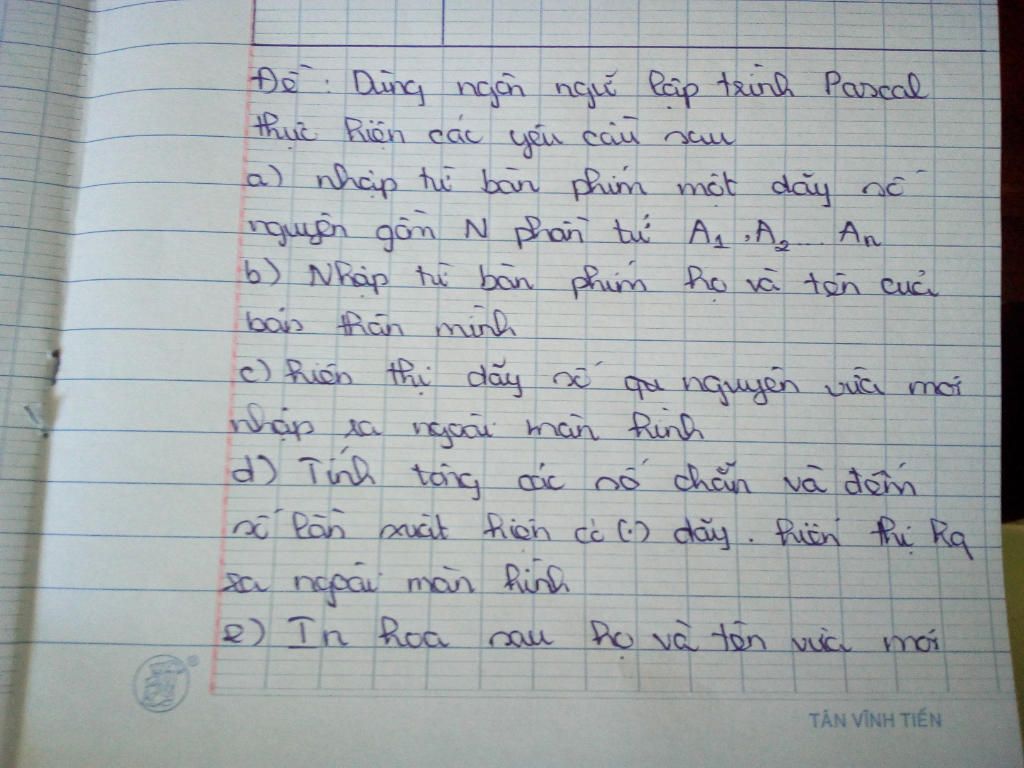 Đề : Dùng ngôn ngữ lập trình Pascal
thực hiện các yêu cầu sau
a) nhập từ bàn phím một dãy số
nguyên gồm N phần tử A1, A2 ... An
b) Nhập từ bàn phím họ và tên của
bản thân mình
c) hiển thị dãy số nguyên vừa mới
nhập ra ngoài màn hình
d) Tính tổng các số chẵn và đếm
số lần xuất hiện có (.) dãy. hiển thị kq
ra ngoài màn hình
e) In hoa sau họ và tên vừa mới
TÂN VĨNH TIẾN